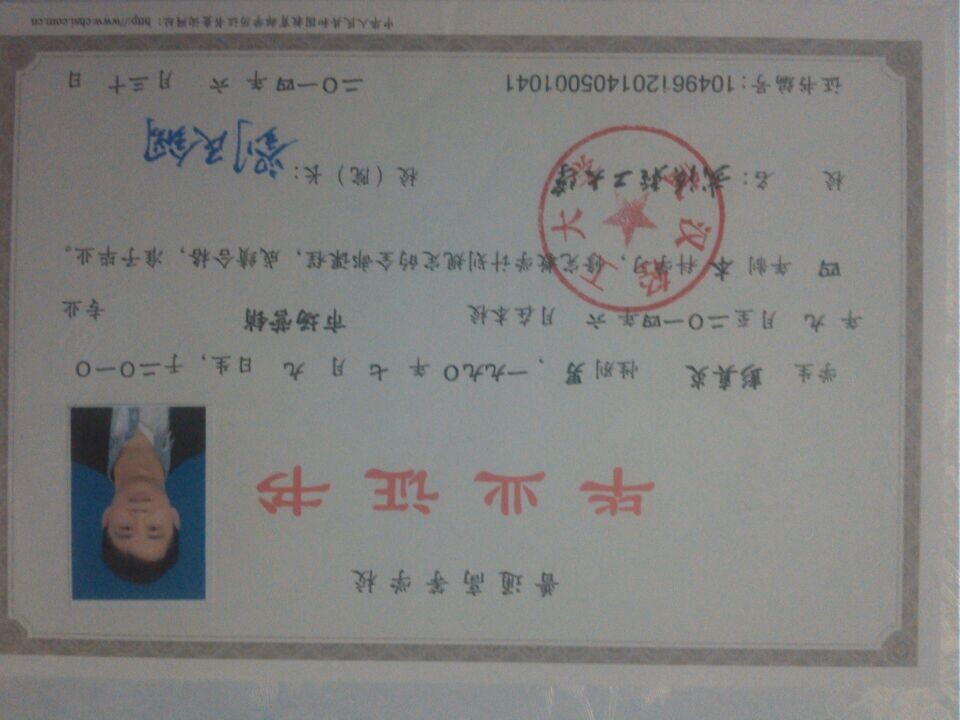 普通高等学校
毕业证书
学生 彭真炎 性别 男，一九九〇年 七 月 九 日生，于二〇一〇
年 九 月至二〇一四年 六 月在本校 市场营销 专业
四 年制 本 科学习，修完教学计划规定的全部课程，成绩合格，准予毕业。
校 名：武汉轻工大学 校（院）长：
证书编号：104961201405001041 二〇一四年 六 月三十 日
中华人民共和国教育部学历证书查询网址：http://www.chsi.com.cn
武汉轻工大学